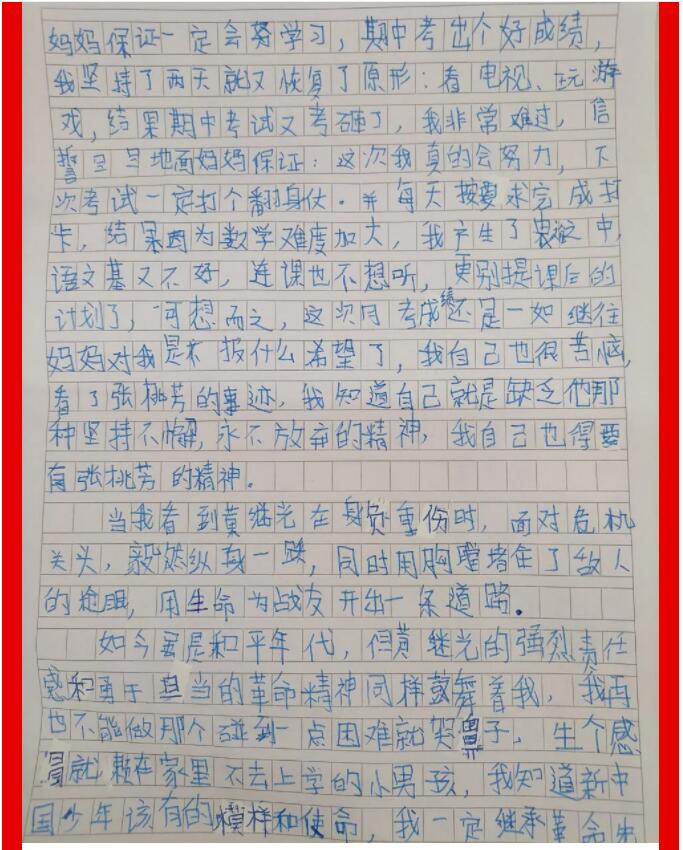 妈妈保证一定会努学习，期中考出个好成绩，
我坚持了两天就又恢复了原形：看电视、玩游
戏，结果期中考试又考砸了，我非常难过，信
誓旦旦地面妈妈保证：这次我真的会努力，下
次考试一定打个翻身仗。并每天按要求完成打
卡，结果因为数学难度加大，我产生了畏
语文基又不好，连课也不想听，更别提课后的
计划了，可想而之，这次月考成绩还是一如继往
妈妈对我是不报什么希望了，我自己也很苦恼，
看了张桃芳的事迹，我知道自己就是缺乏他那
种坚持不懈，永不放弃的精神，我自己也得要
有张桃芳的精神。
当我看到黄继光在身负重伤时，面对危机
关头，毅然纵身一跃，同时用胸膛堵住了敌人
的枪眼，用生命为战友开出一条道路。
如今虽是和平年代，但黄继光的强烈责任
感和勇于担当的革命精神同样鼓舞着我，我再
也不能做那个碰到一点困难就哭鼻子，生个感
冒就赖在家里不去上学的小男孩，我知道新中
国少年该有的模样和使命，我一定继承革命先